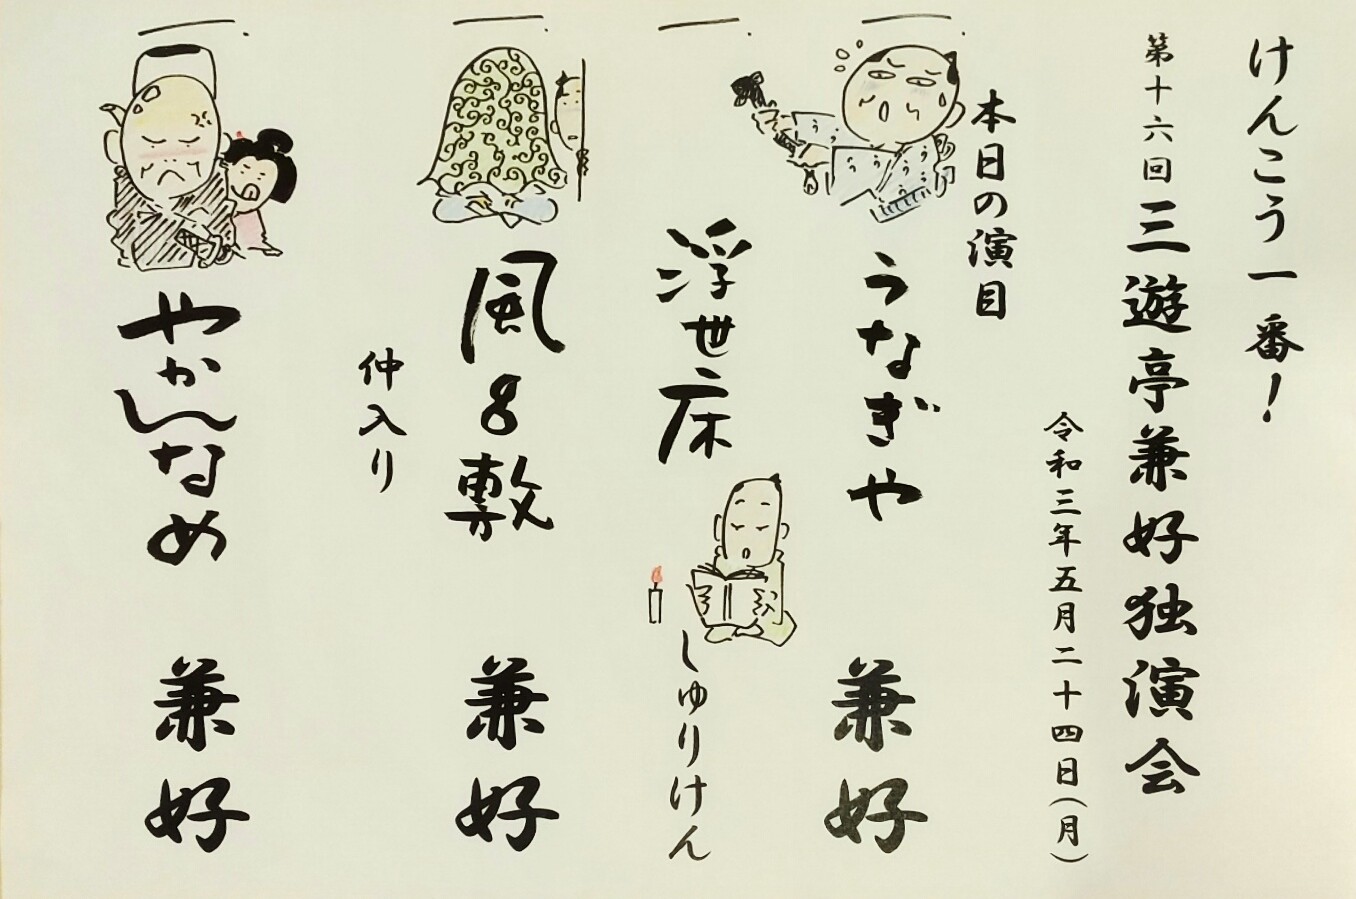 けんこう一番！
第十六回三遊亭兼好独演会
令和三年五月二十四日(月)
本日の演目
一、うなぎや 兼好
一、浮世床 しゅりけん
一、風呂敷 兼好
仲入り
一、やかんなめ 兼好